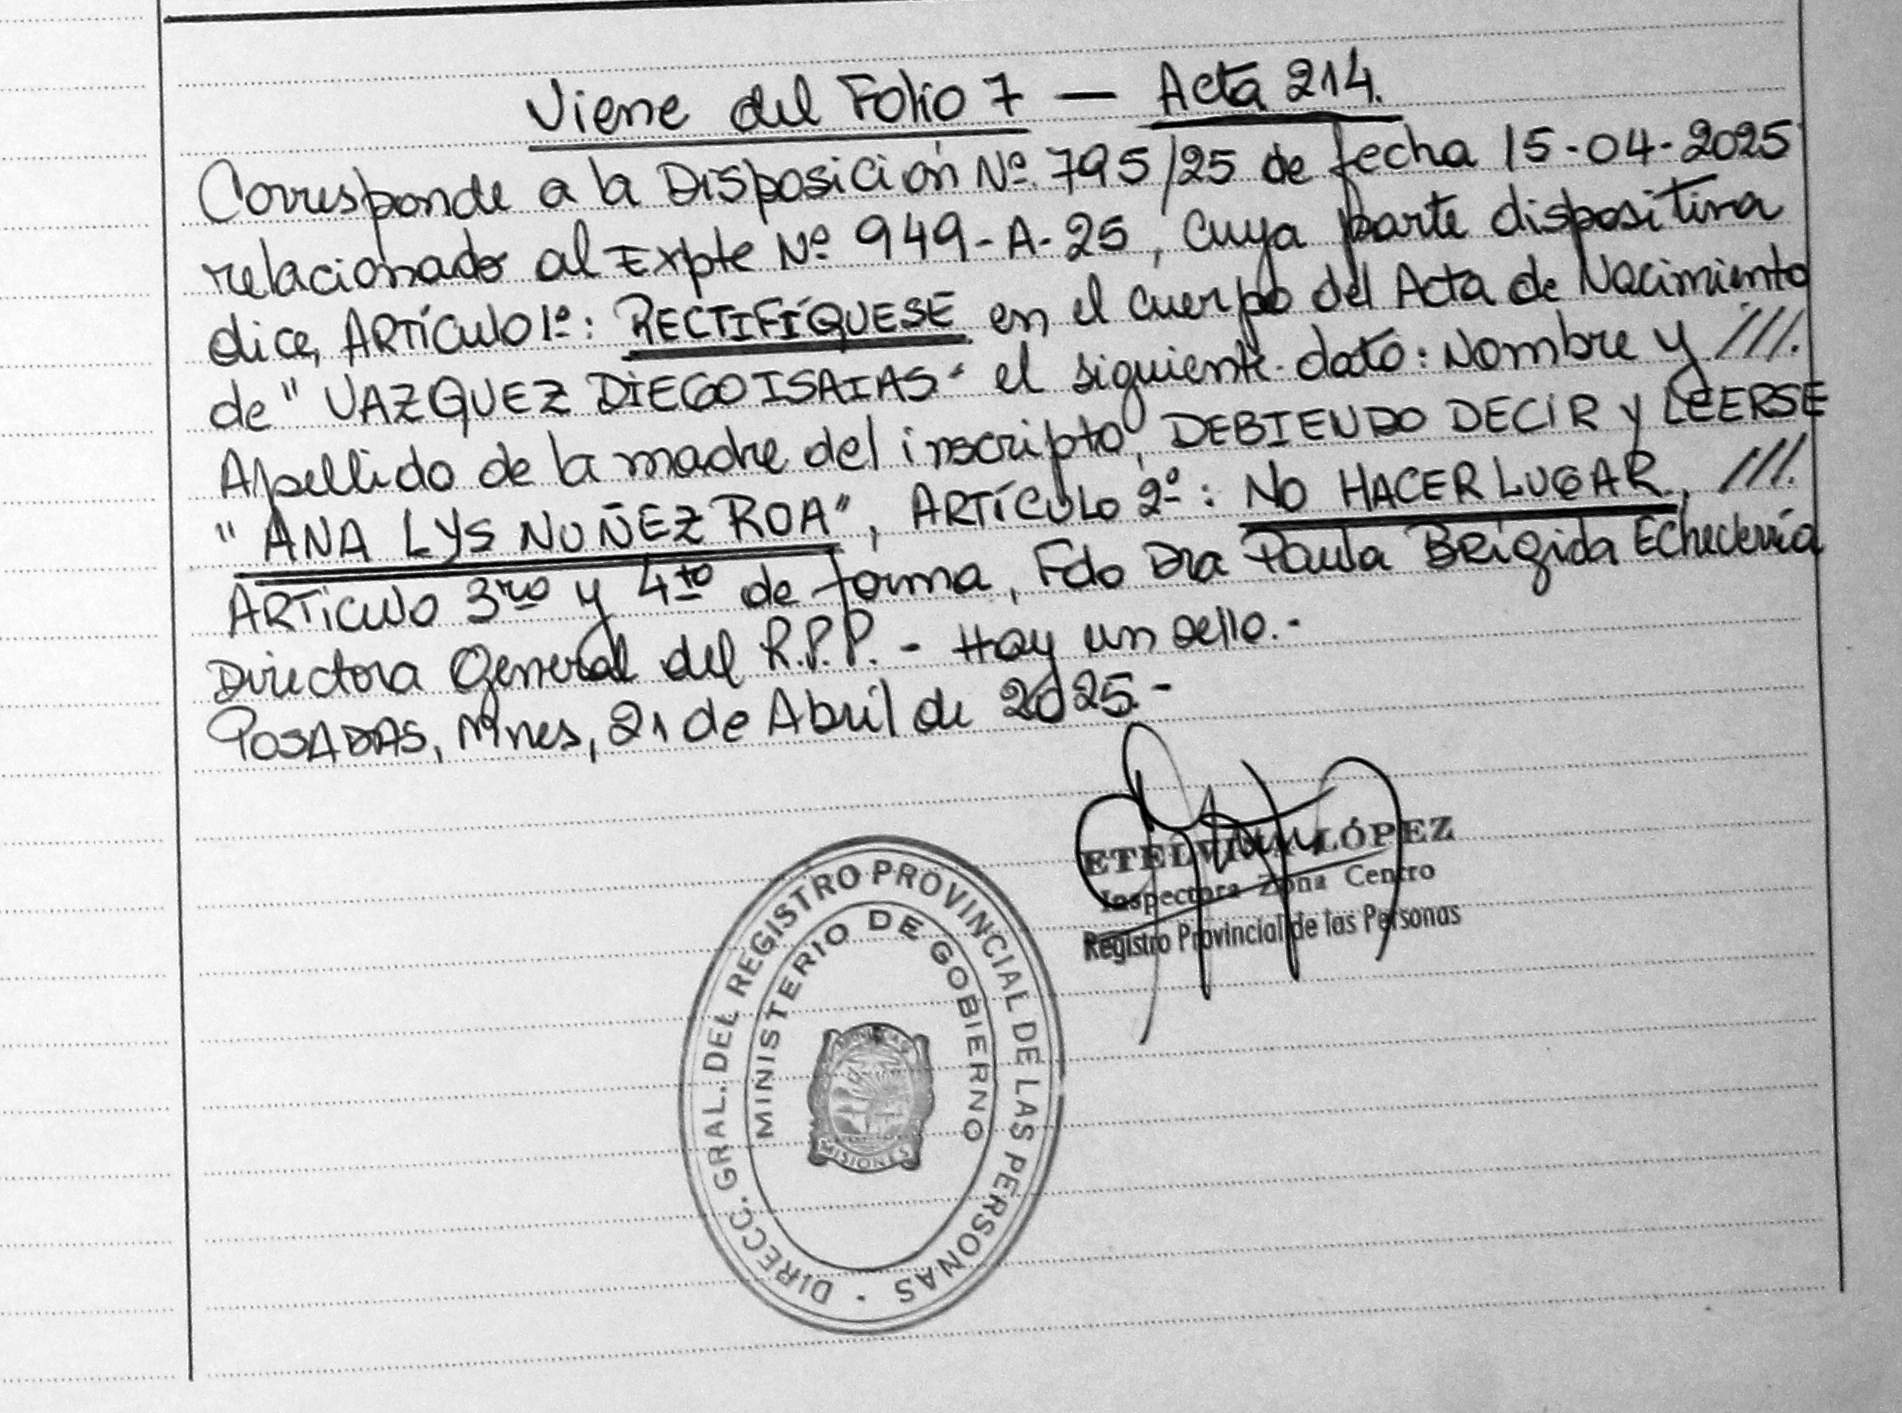 Viene del Folio 7 — Acta 214.
Corresponde a la Disposición Nº 795/25 de fecha 15-04-2025
relacionado al Expte Nº 949-A-25, cuya parte dispositiva
dice, ARTÍCULO 1º: RECTIFÍQUESE en el cuerpo del Acta de Nacimiento
de "VAZQUEZ DIEGO ISAIAS" el siguiente dato: Nombre y ///.
Apellido de la madre del inscripto, DEBIENDO DECIR y LEERSE
"ANA LYS NUÑEZ ROA", ARTÍCULO 2º: NO HACER LUGAR, ///.
ARTICULO 3ro y 4to de forma, Fdo Dra Paula Brígida Echeverría
Directora General del R.P.P. - Hay un sello.-
POSADAS, Mnes, 21 de Abril de 2025.-
ETELVINA LÓPEZ
Inspectora Zona Centro
Registro Provincial de las Personas
DIRECC. GRAL. DEL REGISTRO PROVINCIAL DE LAS PERSONAS
MINISTERIO DE GOBIERNO
MISIONES